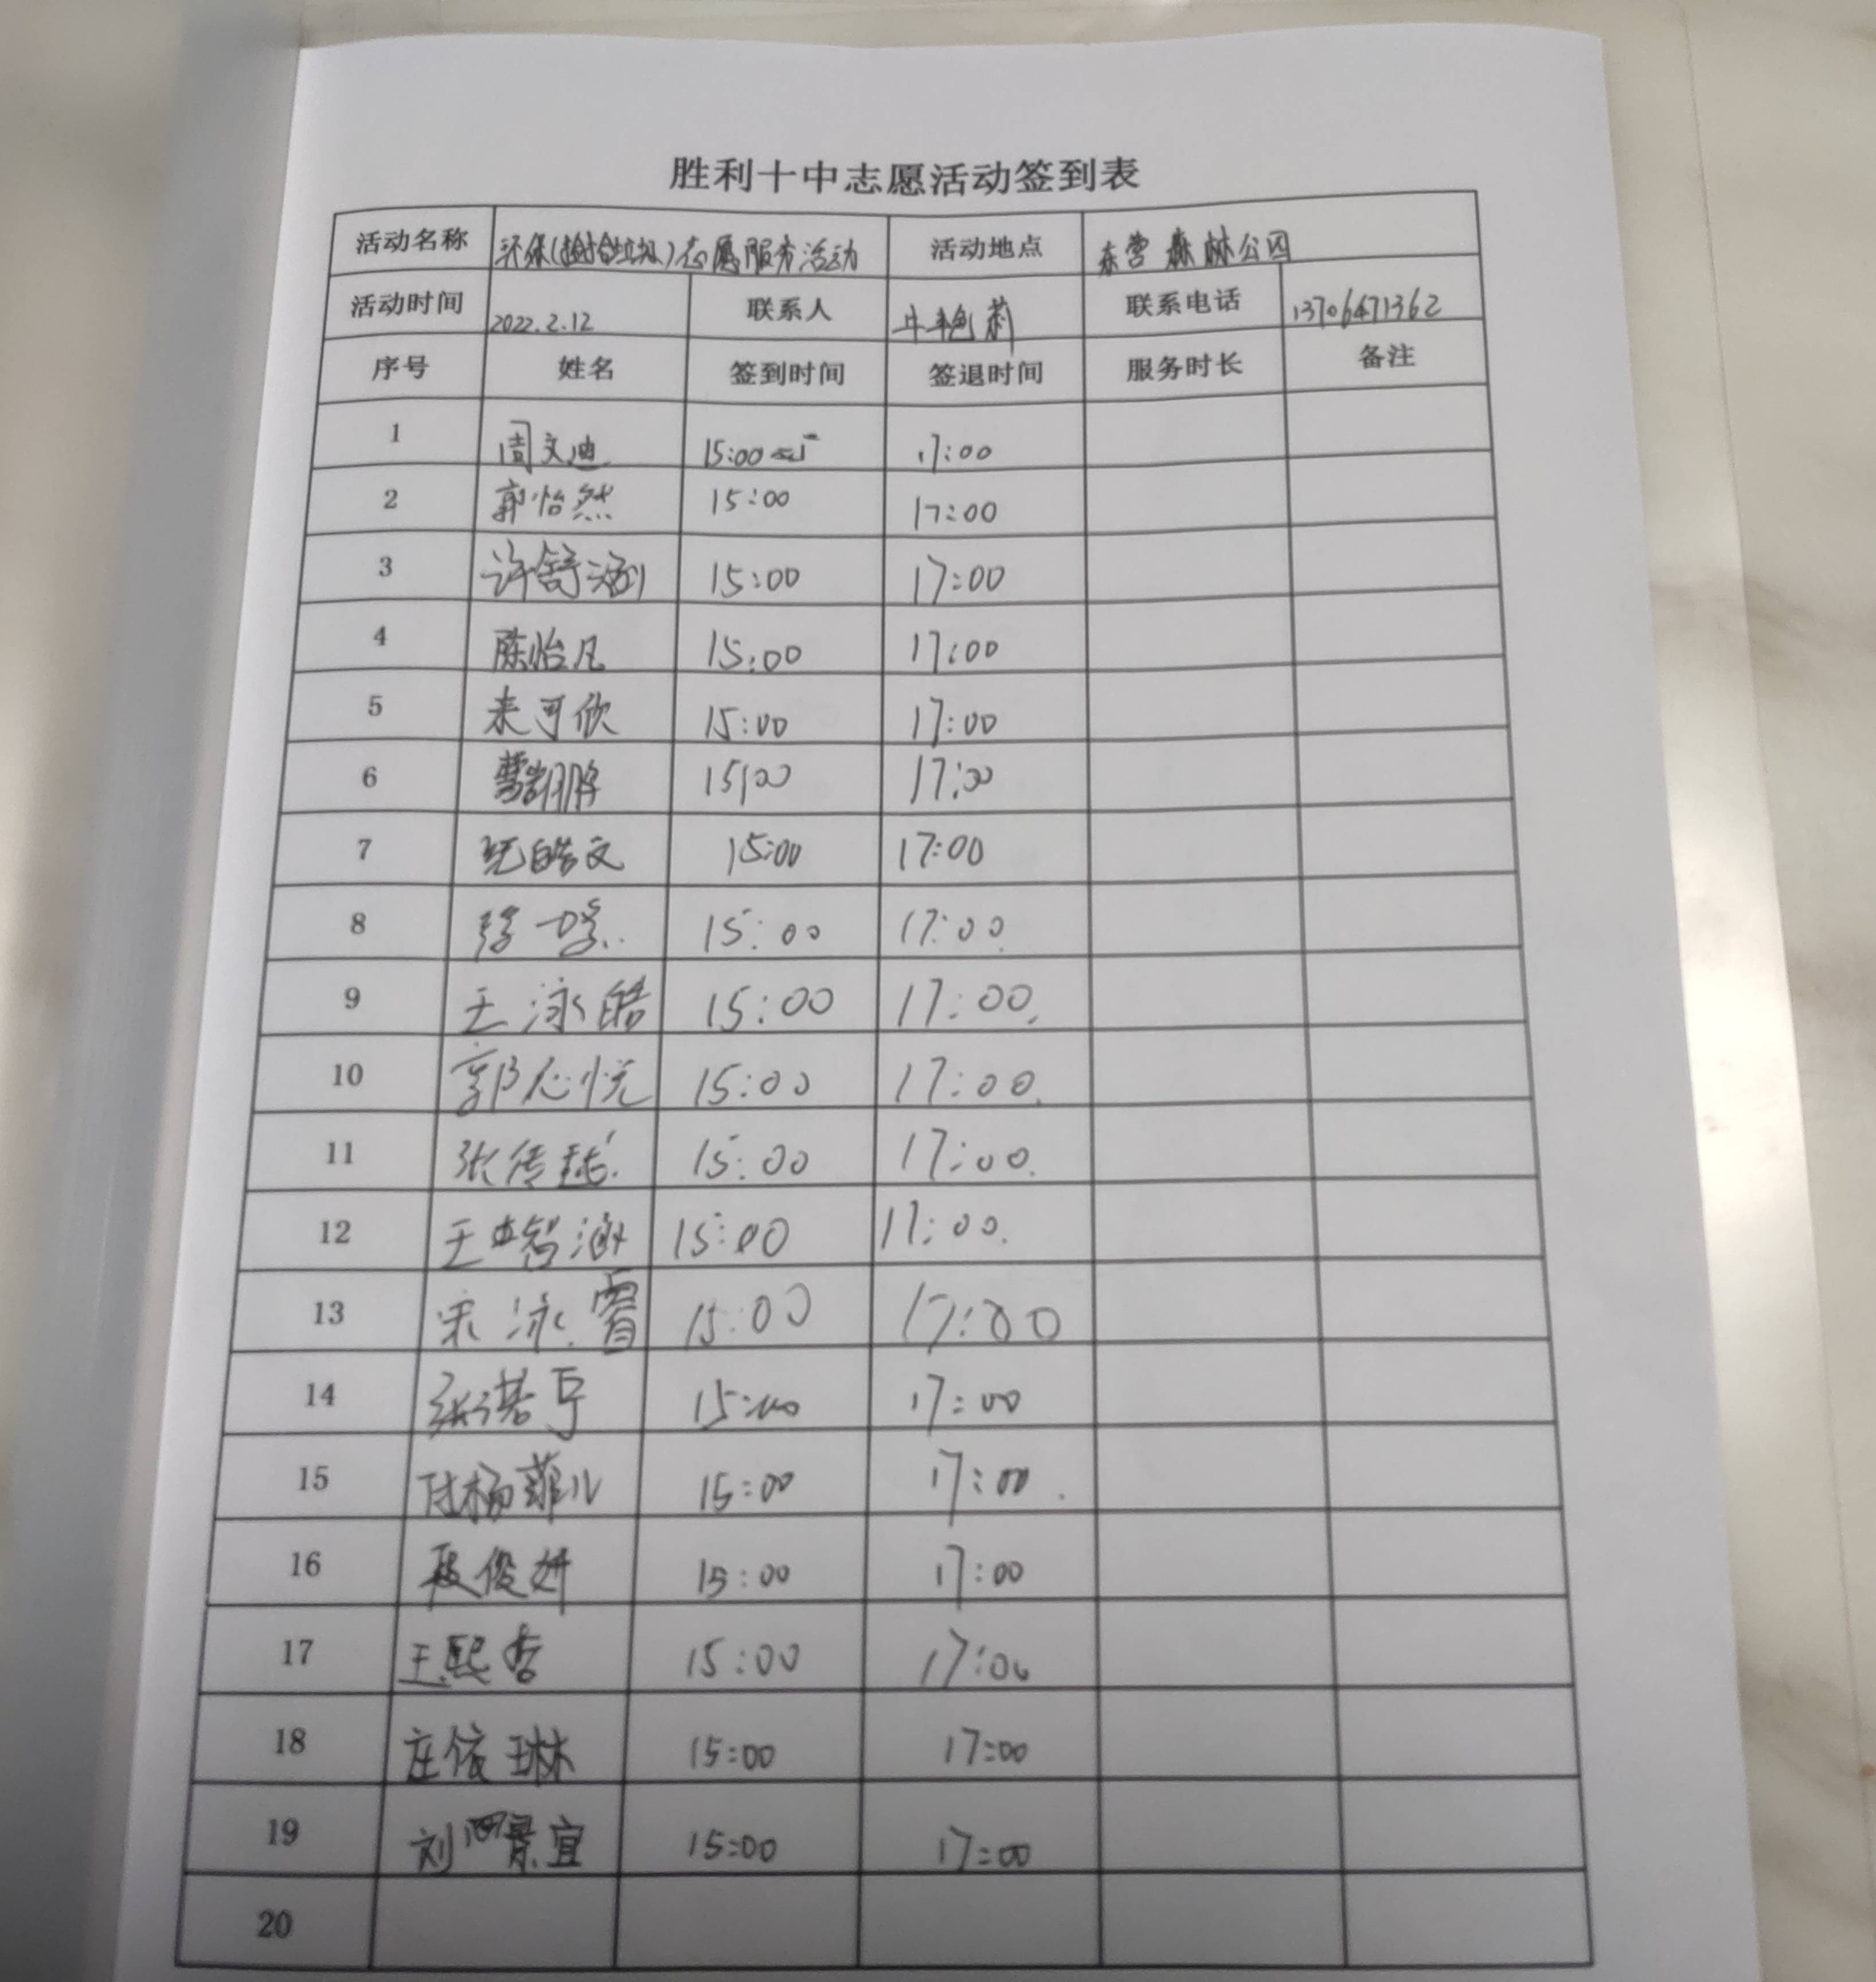 胜利十中志愿活动签到表
活动名称 环保(捡拾垃圾)志愿服务活动 活动地点 东营森林公园
活动时间 2022.2.12 联系人 联系电话 13706471362
序号 姓名 签到时间 签退时间 服务时长 备注
1 周文迪 15:00 17:00
2 郭怡然 15:00 17:00
3 许舒涵 15:00 17:00
4 陈怡凡 15:00 17:00
5 来可欣 15:00 17:00
6 15:00 17:00
7 皓文 15:00 17:00
8 15:00 17:00
9 王泳皓 15:00 17:00.
10 郭心悦 15:00 17:00.
11 张传 15:00 17:00.
12 王智涵 15:00 17:00.
13 宋泳霄 15:00 17:00
14 张诺亨 15:00 17:00
15 付杨菲儿 15:00 17:00
16 段俊妍 15:00 17:00
17 王熙睿 15:00 17:00
18 庄依琳 15:00 17:00
19 刘景宜 15:00 17:00
20